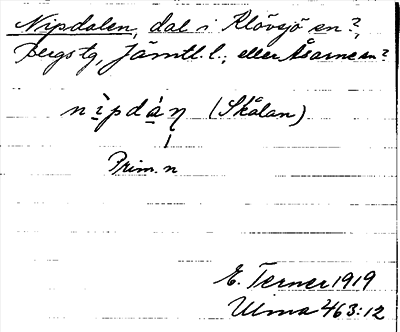 Nipdalen, dal i Klövsjö sn?,
Bergs tg, Jämtl. l., eller Åsarne sn?
nìpdáŋ (Skålan)
Prim. n
E. Terner 1919
Ulma 463:12